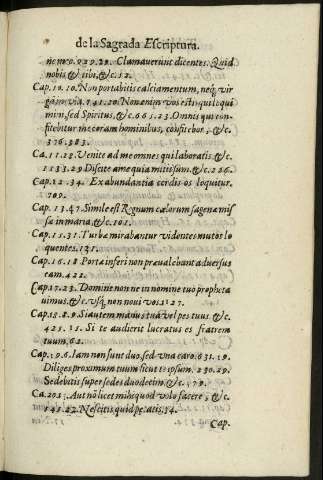 de la Sagrada Escriptura.
ne no. 929. 29. Clamaverunt dicentes. Quid
nobis, & tibi, &c. 12.
Cap. 10. 10. Non portabitis calciamentum, neq; vir
gam in via. 741. 20. Non enim vos estis qui loqui
mini, sed Spiritus, &c. 66 1. 23. Omnis qui con-
fitebitur me coram hominibus, confitebor, &c.
376. 383.
Ca. 11. 28. Venite ad me omnes qui laboratis. &c.
1133. 29 Discite a me quia mitis sum. &c. 226.
Cap. 12. 34. Ex abundantia cordis os loquitur.
709.
Cap. 13. 47. Simile est Regnum cælorum sagenæ mis
sæ in maria, &c. 101.
Cap. 15. 31. Turbæ mirabantur videntes mutos lo
quentes. 121.
Cap. 16. 18 Portæ inferi non prævalebunt adversus
eam. 422.
Cap. 17. 23. Domine nonne in nomine tuo propheta
vimus, &c. usq; non novi vos. 1127.
Cap. 18. 8. 9. Si autem manus tua vel pes tuus. &c.
425. 15. Si te audierit lucratus es fratrem
tuum, 62.
Cap. 19. 6. Iam non sunt duo, sed una caro. 631. 19.
Diliges proximum tuum sicut te ipsum. 230. 29.
Sedebitis super sedes duodecim, &c. 179.
Ca. 201. Aut non licet mihi quod volo facere, &c.
141. 22. Nescitis quid petatis. 34.
Cap.